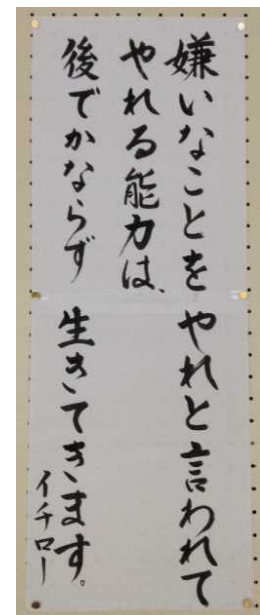 嫌いなことを やれと言われて
やれる能力は、
後でかならず 生きてきます。
イチロー